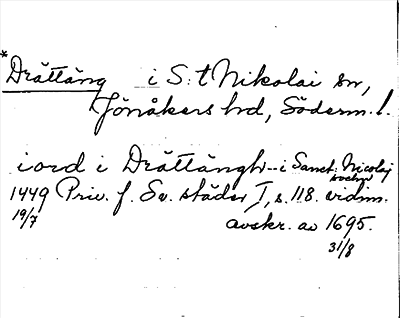 *Drättäng i S:t Nikolai sn,
Jönåkers hd, Söderm. l.
iord i Drättängh -- i Sanct: Nicolaj sochn
1449 Priv. f. Sv. städer I, s. 118. vidim.
19/7 avskr. av 1695.
31/8